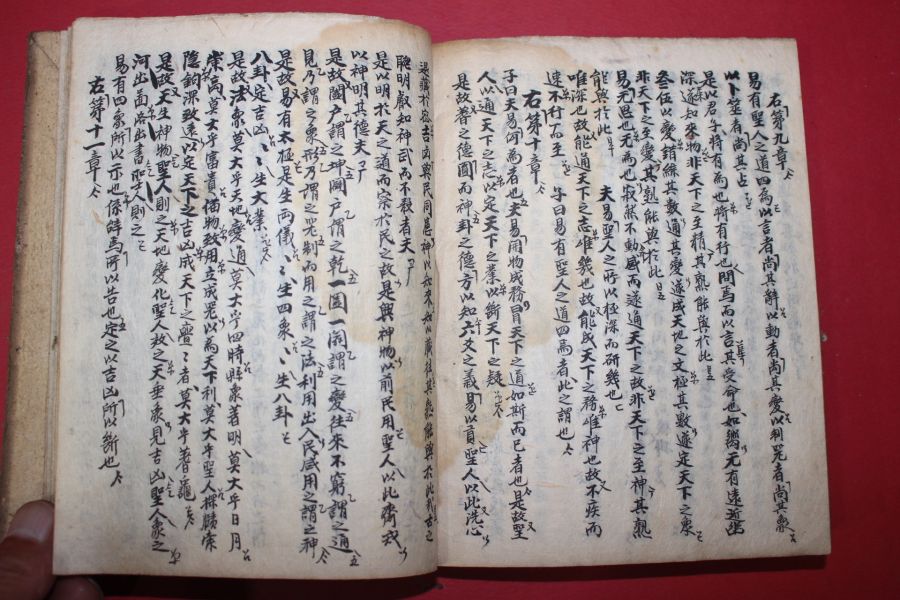 右第九章
易有聖人之道四焉以言者尚其辭以動者尚其變以制器者尚其象
以卜筮者尚其占
是以君子將有爲也將有行也問焉而以言其受命也如嚮无有遠近幽
深遂知來物非天下之至精其孰能與於此
參伍以變錯綜其數通其變遂成天地之文極其數遂定天下之象
非天下之至變其孰能與於此
易无思也无爲也寂然不動感而遂通天下之故非天下之至神其孰
能與於此 夫易聖人之所以極深而研幾也
唯深也故能通天下之志唯幾也故能成天下之務唯神也故不疾而
速不行而至 子曰易有聖人之道四焉者此之謂也
右第十章
子曰夫易何爲者也夫易開物成務冒天下之道如斯而已者也是故聖
人以通天下之志以定天下之業以斷天下之疑
是故蓍之德圓而神卦之德方以知六爻之義易以貢聖人以此洗心
退藏於密吉凶與民同患神以知來知以藏往其孰能與於此哉古之
聰明叡知神武而不殺者夫
是以明於天之道而察於民之故是興神物以前民用聖人以此齊戒
以神明其德夫
是故闔戶謂之坤闢戶謂之乾一闔一闢謂之變往來不窮謂之通
見乃謂之象形乃謂之器制而用之謂之法利用出入民咸用之謂之神
是故易有太極是生兩儀〻〻生四象〻〻生八卦
八卦定吉凶〻〻生大業
是故法象莫大乎天地變通莫大乎四時縣象著明莫大乎日月
崇高莫大乎富貴備物致用立成器以爲天下利莫大乎聖人探賾索
隱鉤深致遠以定天下之吉凶成天下之亹〻者莫大乎蓍龜
是故天生神物聖人則之天地變化聖人效之天垂象見吉凶聖人象之
河出圖洛出書聖人則之
易有四象所以示也係辭焉所以告也定之以吉凶所以斷也
右第十一章